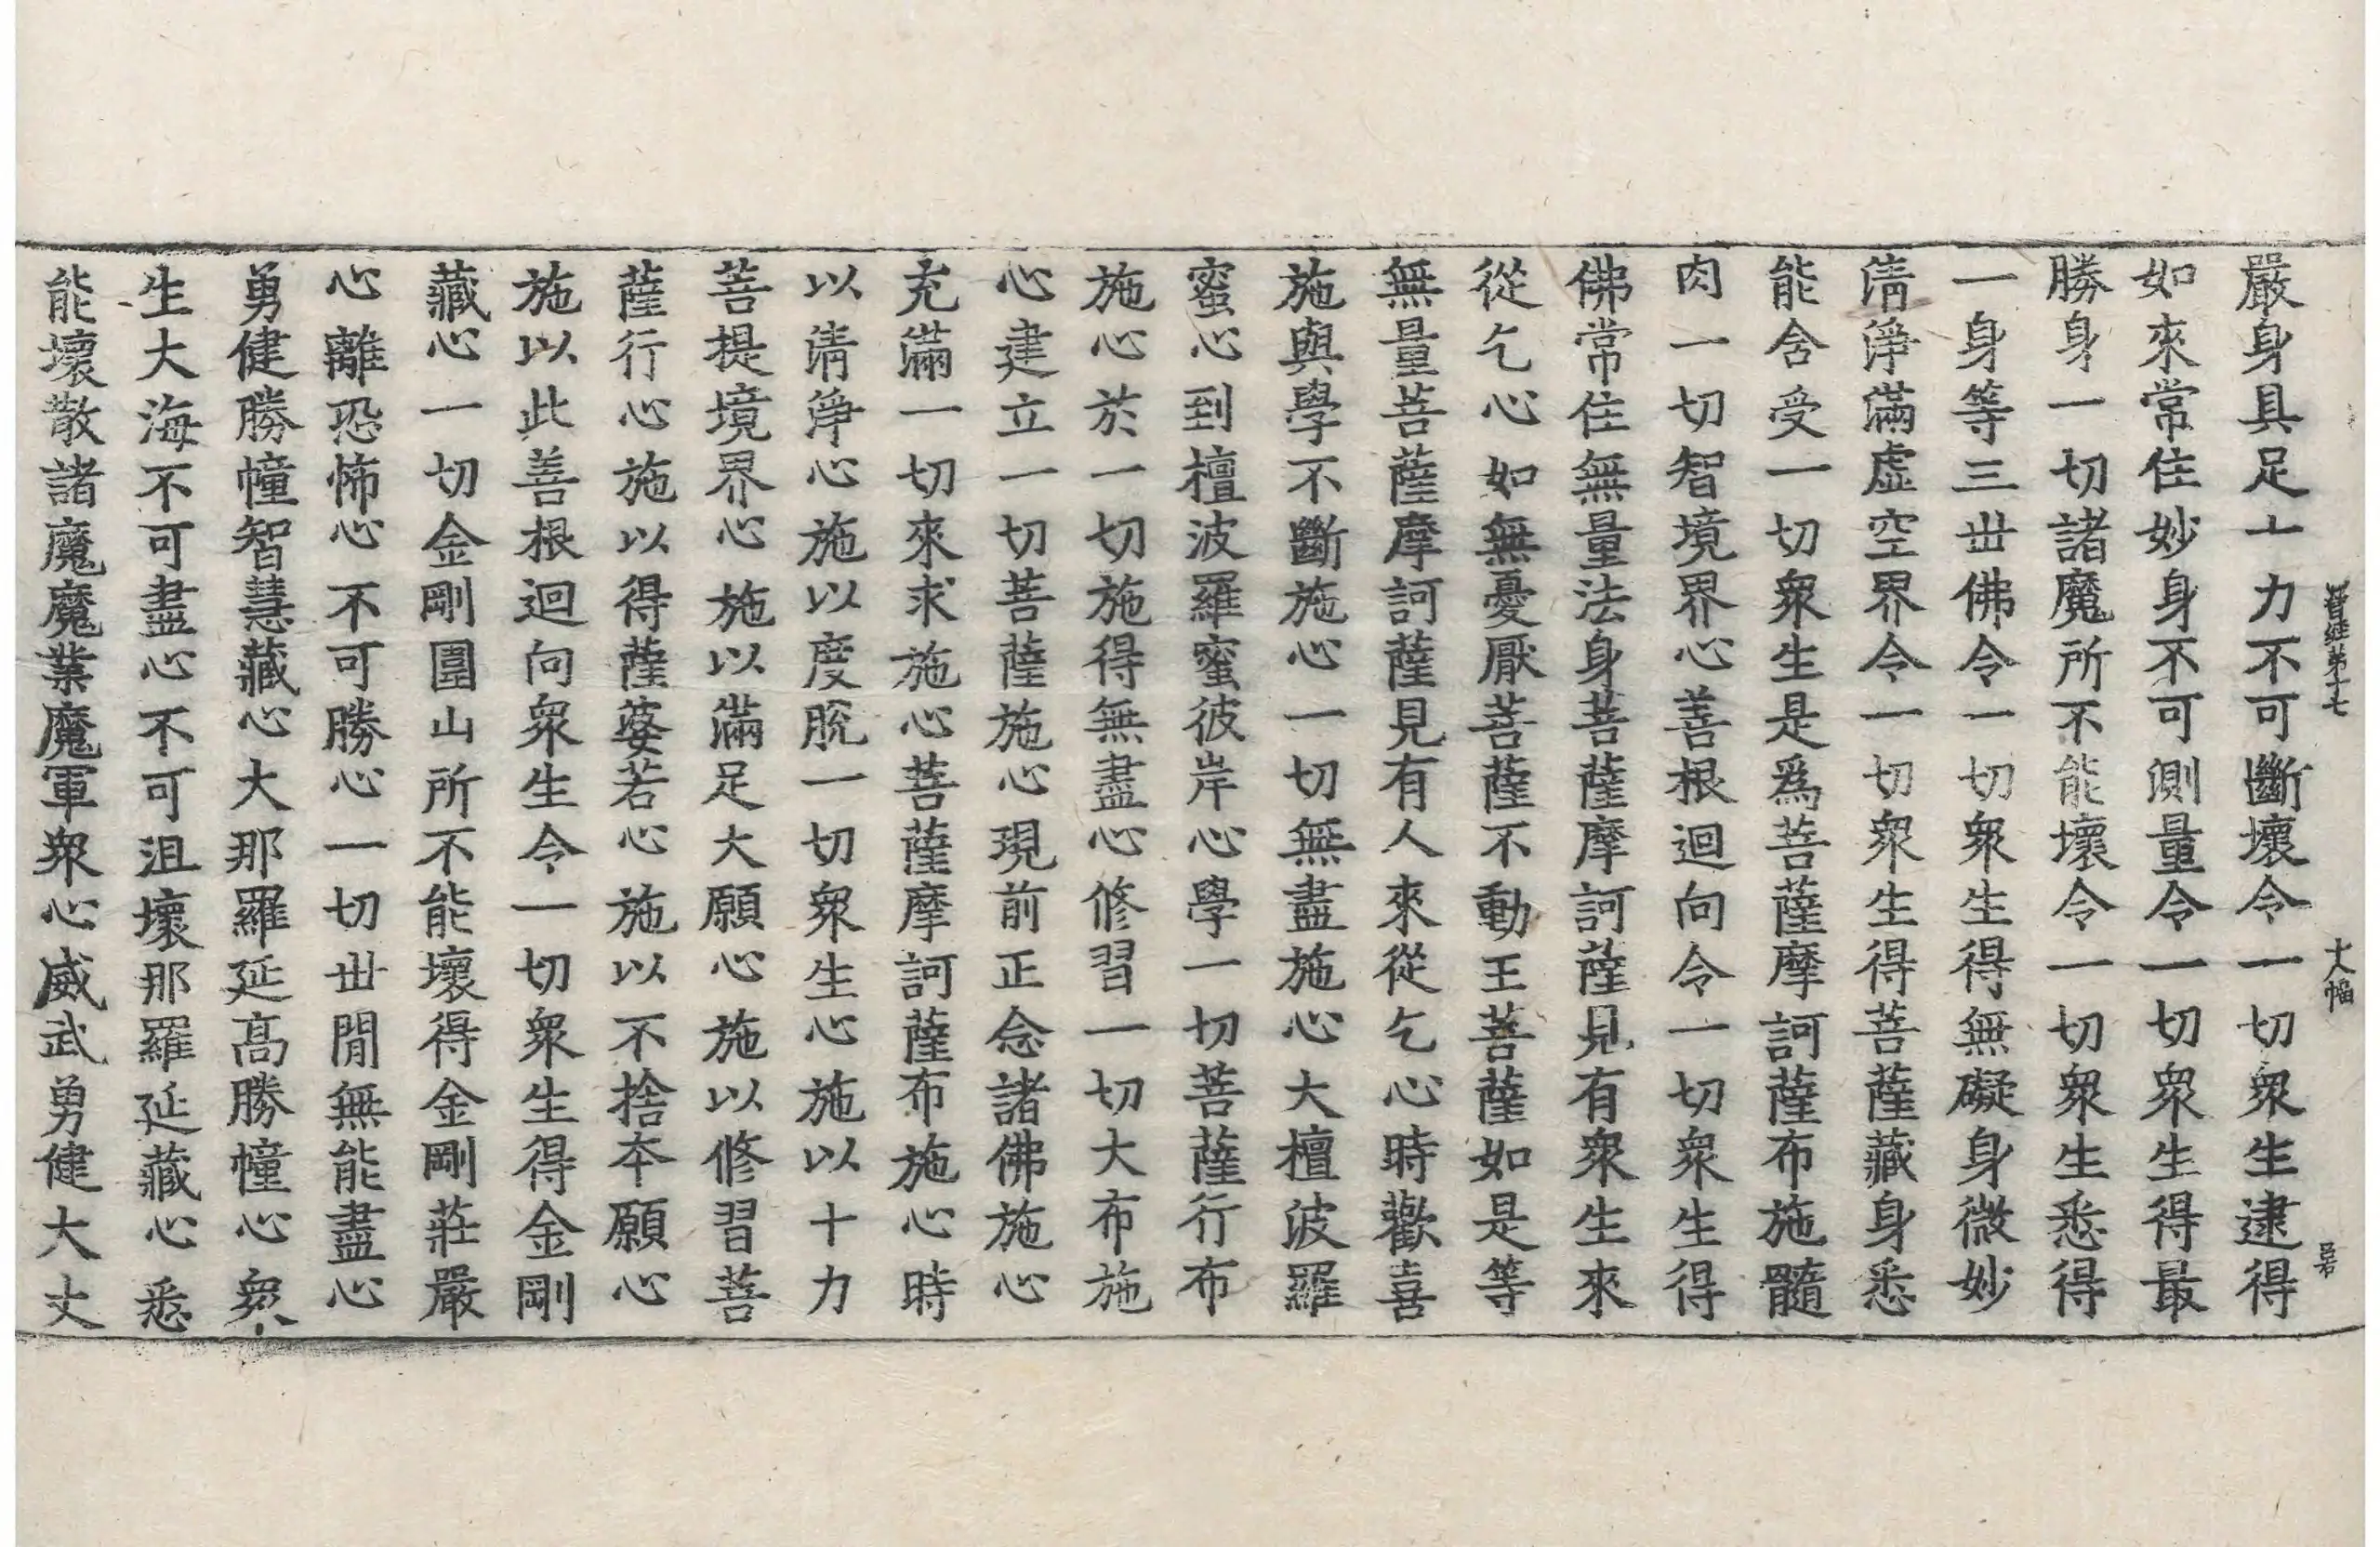 晉經第十七 十八幅 呂若
嚴身具足十力不可斷壞令一切衆生逮得
如來常住妙身不可測量令一切衆生得最
勝身一切諸魔所不能壞令一切衆生悉得
一身等三世佛令一切衆生得無礙身微妙
淸淨滿虛空界令一切衆生得菩薩藏身悉
能舍受一切衆生是爲菩薩摩訶薩布施髓
肉一切智境界心善根迴向令一切衆生得
佛常住無量法身菩薩摩訶薩見有衆生來
從乞心如無憂厭菩薩不動王菩薩如是等
無量菩薩摩訶薩見有人來從乞心時歡喜
施與學不斷施心一切無盡施心大檀波羅
蜜心到檀波羅蜜彼岸心學一切菩薩行布
施心於一切施得無盡心修習一切大布施
心建立一切菩薩施心現前正念諸佛施心
充滿一切來求施心菩薩摩訶薩布施心時
以淸淨心施以度脫一切衆生心施以十力
菩提境界心施以滿足大願心施以修習菩
薩行心施以得薩婆若心施以不捨本願心
施以此善根迴向衆生令一切衆生得金剛
藏心一切金剛圍山所不能壞得金剛莊嚴
心離恐怖心不可勝心一切世閒無能盡心
勇健勝幢智慧藏心大那羅延高勝幢心衆
生大海不可盡心不可沮壞那羅延藏心悉
能壞散諸魔魔業魔軍衆心威武勇健大丈